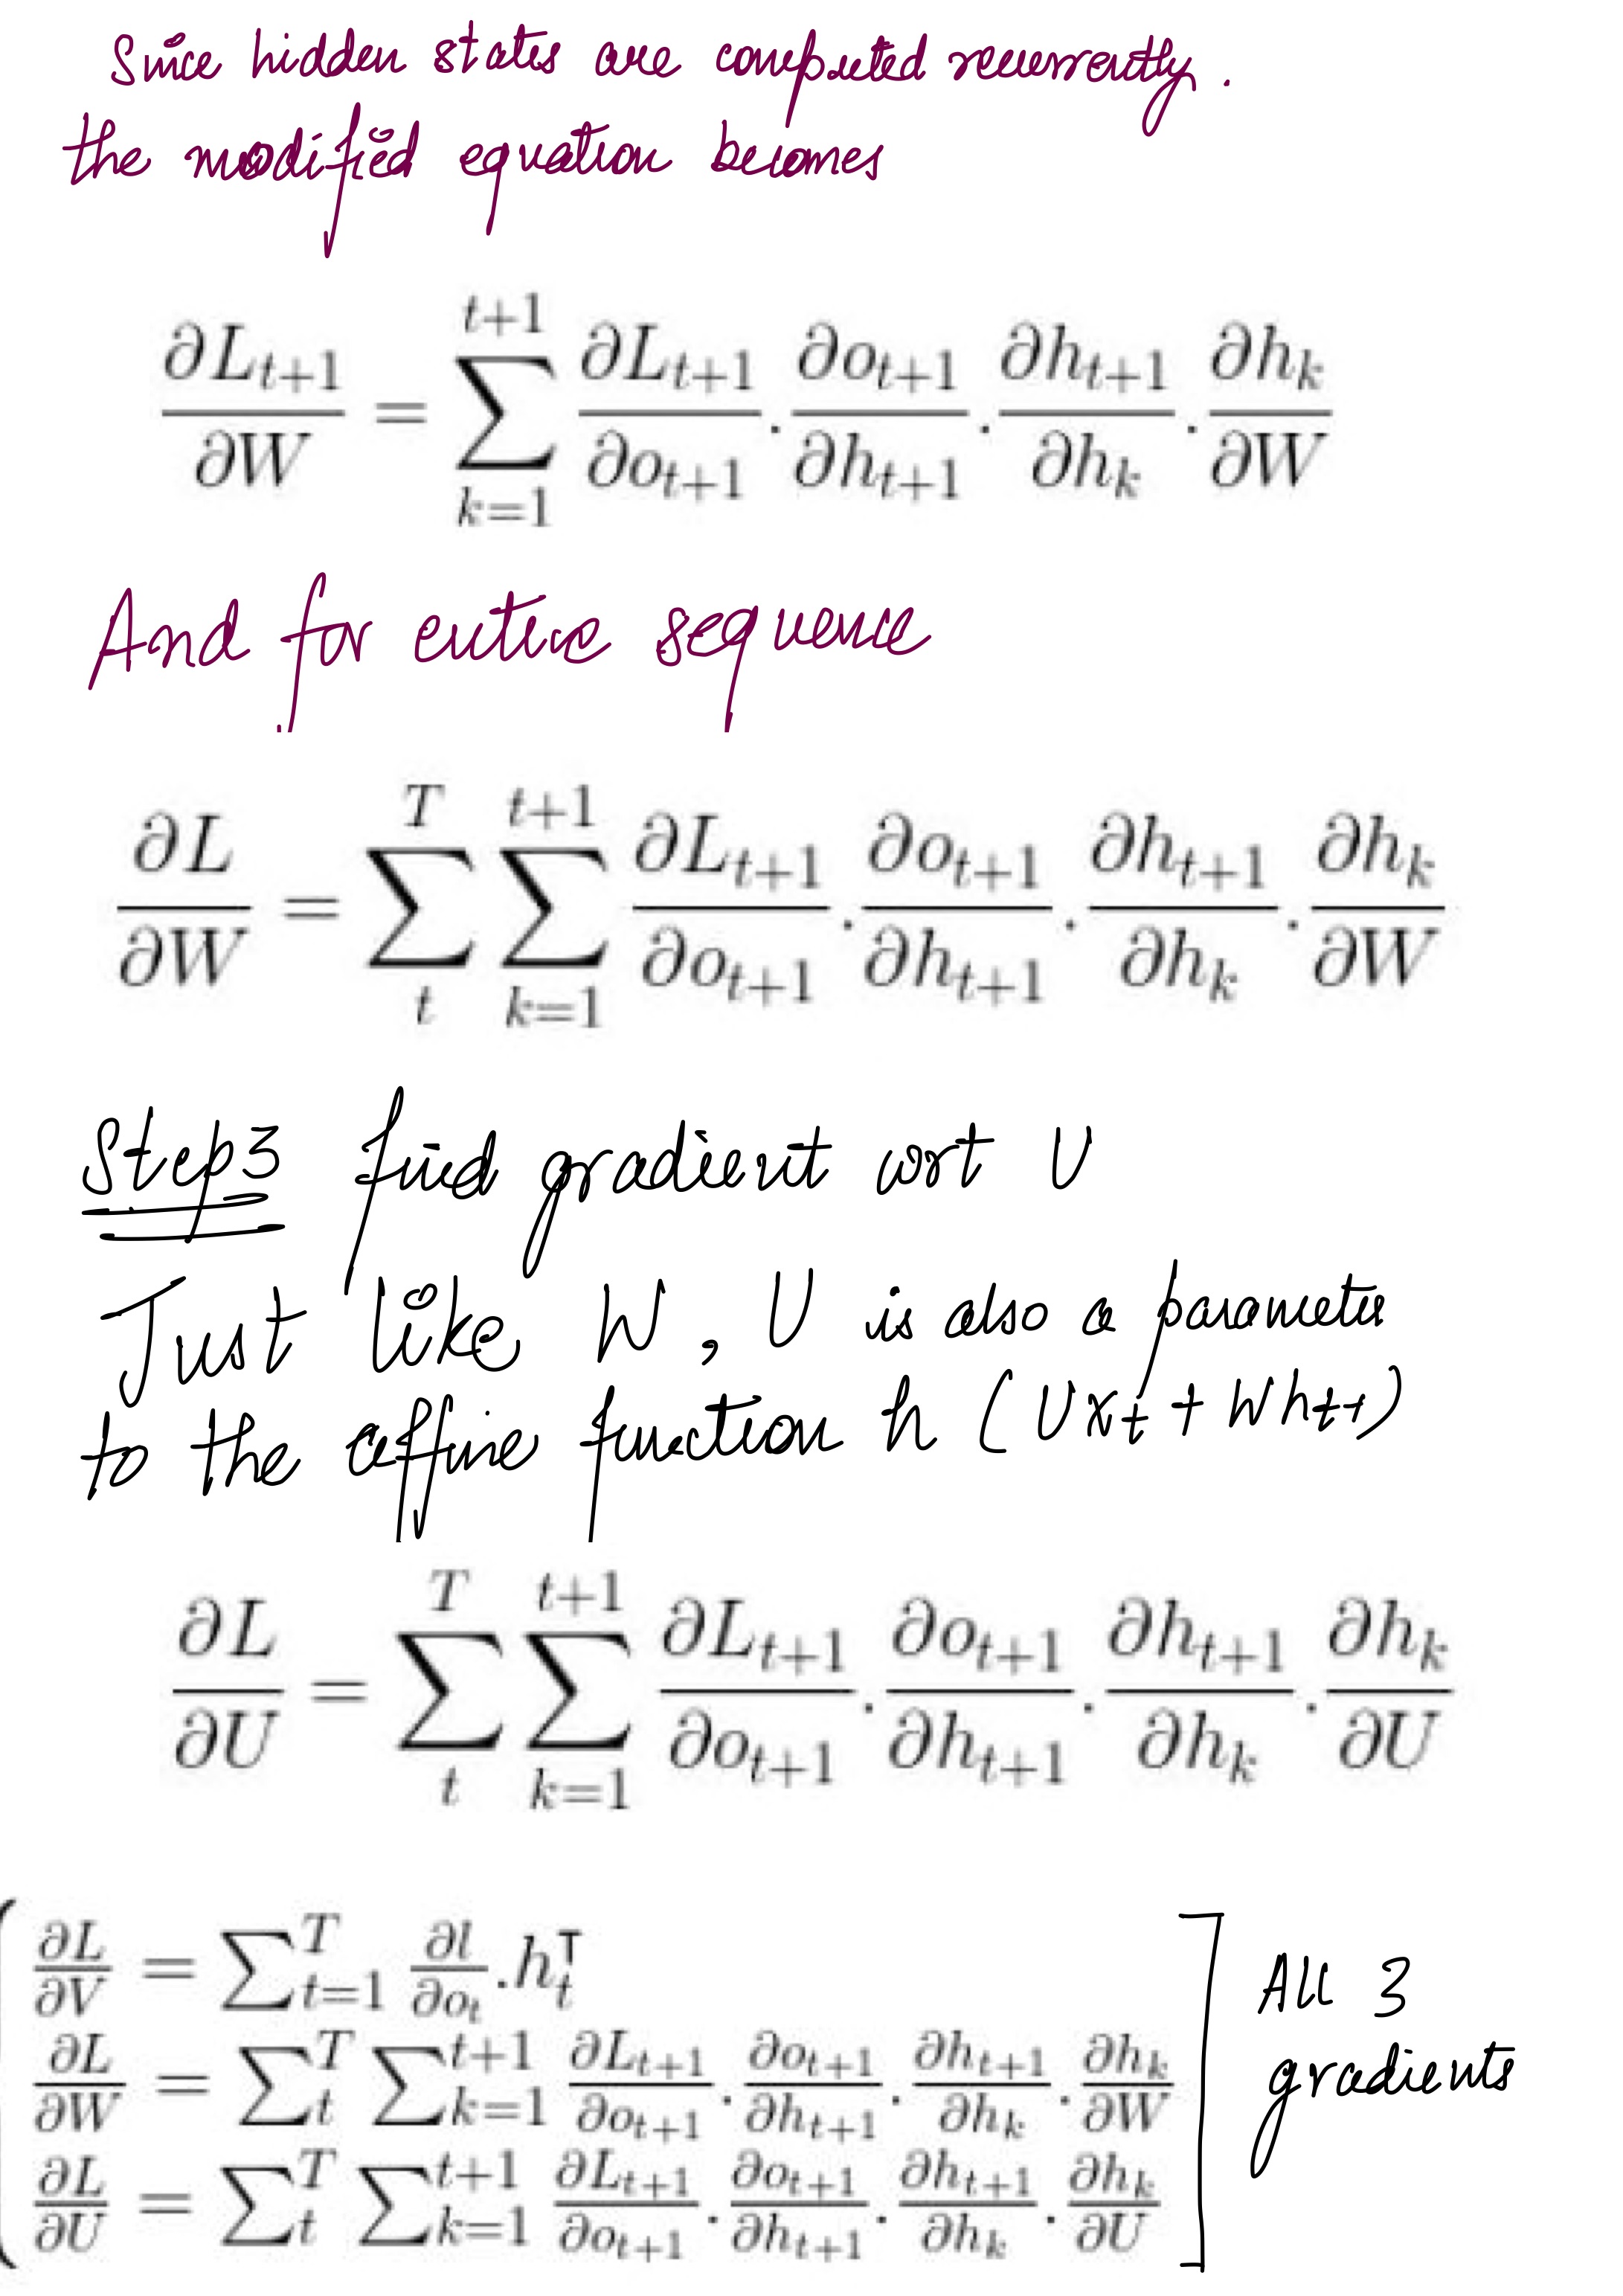 Since hidden states are computed recurrently.
the modified equation becomes
∂L_{t+1}/∂W = ∑_{k=1}^{t+1} ∂L_{t+1}/∂o_{t+1} . ∂o_{t+1}/∂h_{t+1} . ∂h_{t+1}/∂h_k . ∂h_k/∂W
And for entire sequence
∂L/∂W = ∑_{t}^{T} ∑_{k=1}^{t+1} ∂L_{t+1}/∂o_{t+1} . ∂o_{t+1}/∂h_{t+1} . ∂h_{t+1}/∂h_k . ∂h_k/∂W
Step3 find gradient wrt U
Just like W, U is also a parameter
to the affine function h (Ux_t + Wh_{t-1})
∂L/∂U = ∑_{t}^{T} ∑_{k=1}^{t+1} ∂L_{t+1}/∂o_{t+1} . ∂o_{t+1}/∂h_{t+1} . ∂h_{t+1}/∂h_k . ∂h_k/∂U
∂L/∂V = ∑_{t=1}^{T} ∂l/∂o_t . h_t^⊤
∂L/∂W = ∑_{t}^{T} ∑_{k=1}^{t+1} ∂L_{t+1}/∂o_{t+1} . ∂o_{t+1}/∂h_{t+1} . ∂h_{t+1}/∂h_k . ∂h_k/∂W
∂L/∂U = ∑_{t}^{T} ∑_{k=1}^{t+1} ∂L_{t+1}/∂o_{t+1} . ∂o_{t+1}/∂h_{t+1} . ∂h_{t+1}/∂h_k . ∂h_k/∂U
All 3
gradients